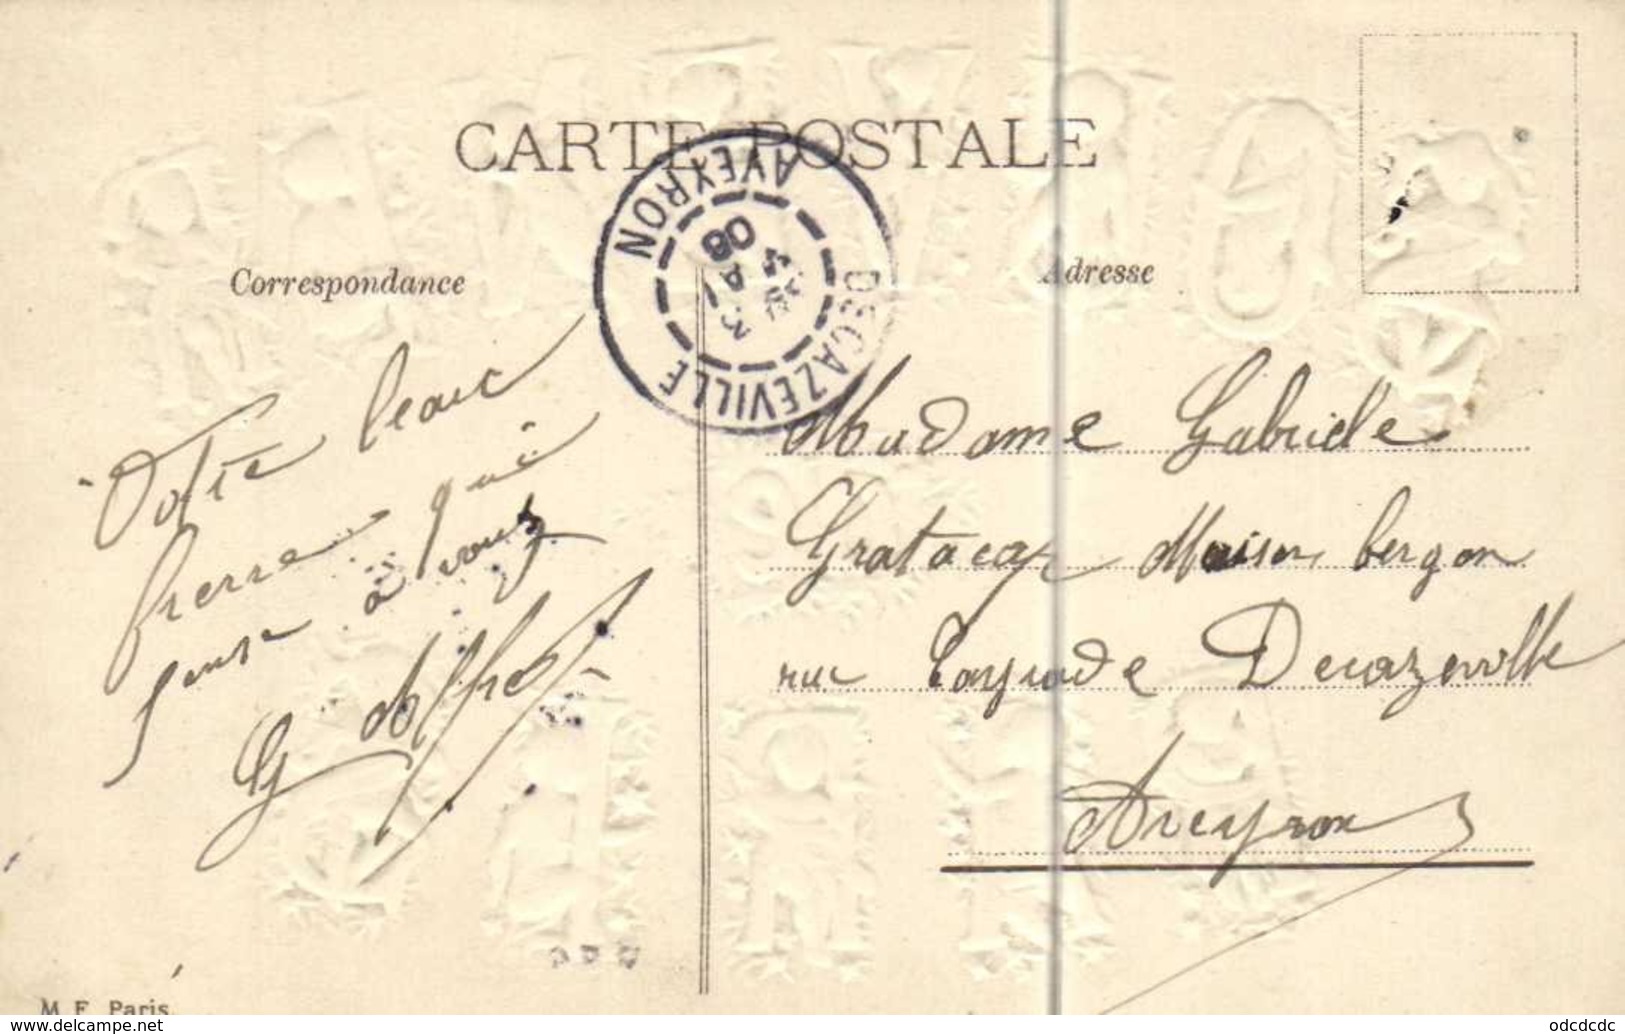 CARTE POSTALE
Correspondance
Adresse
DECAZEVILLE
AVEYRON
08
Votre beau
frerre qui
pense à vous
G Alfred
Madame Gabriele
Gratacap Maison bergon
rue Cayrade Decazeville
Aveyron
M. F. Paris.
www.delcampe.net
odcdcdc